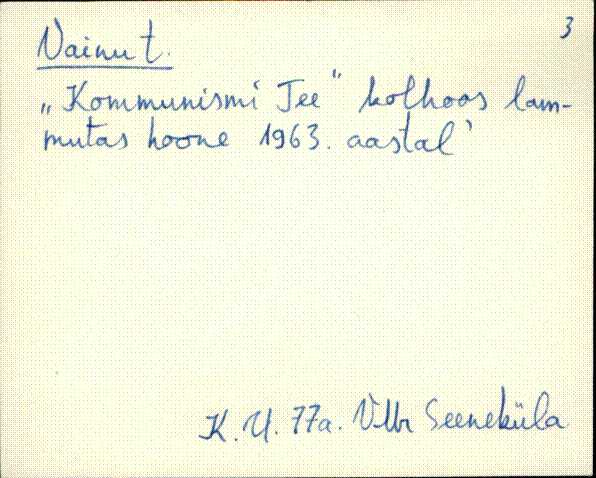 3
Vainu t.
„Kommunismi Tee" kolhoos lam-
mutas hoone 1963. aastal'
K. U. 77a. VMr Seeneküla